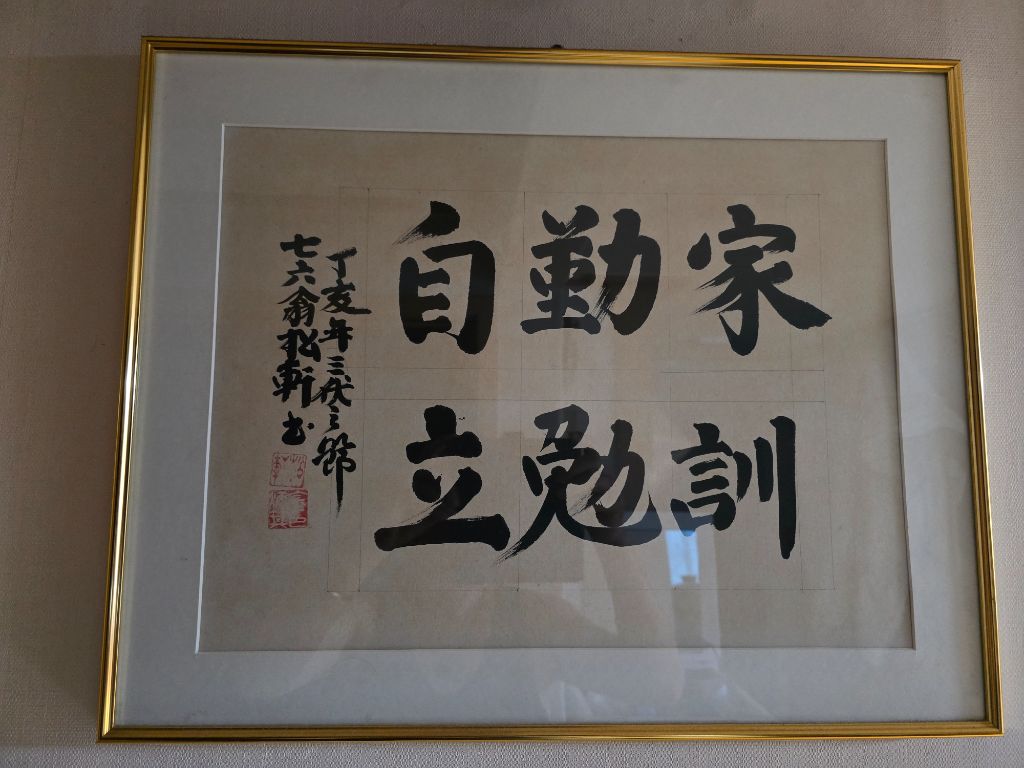 家訓
勤勉
自立
丁亥年三伏之節
七六翁松軒书